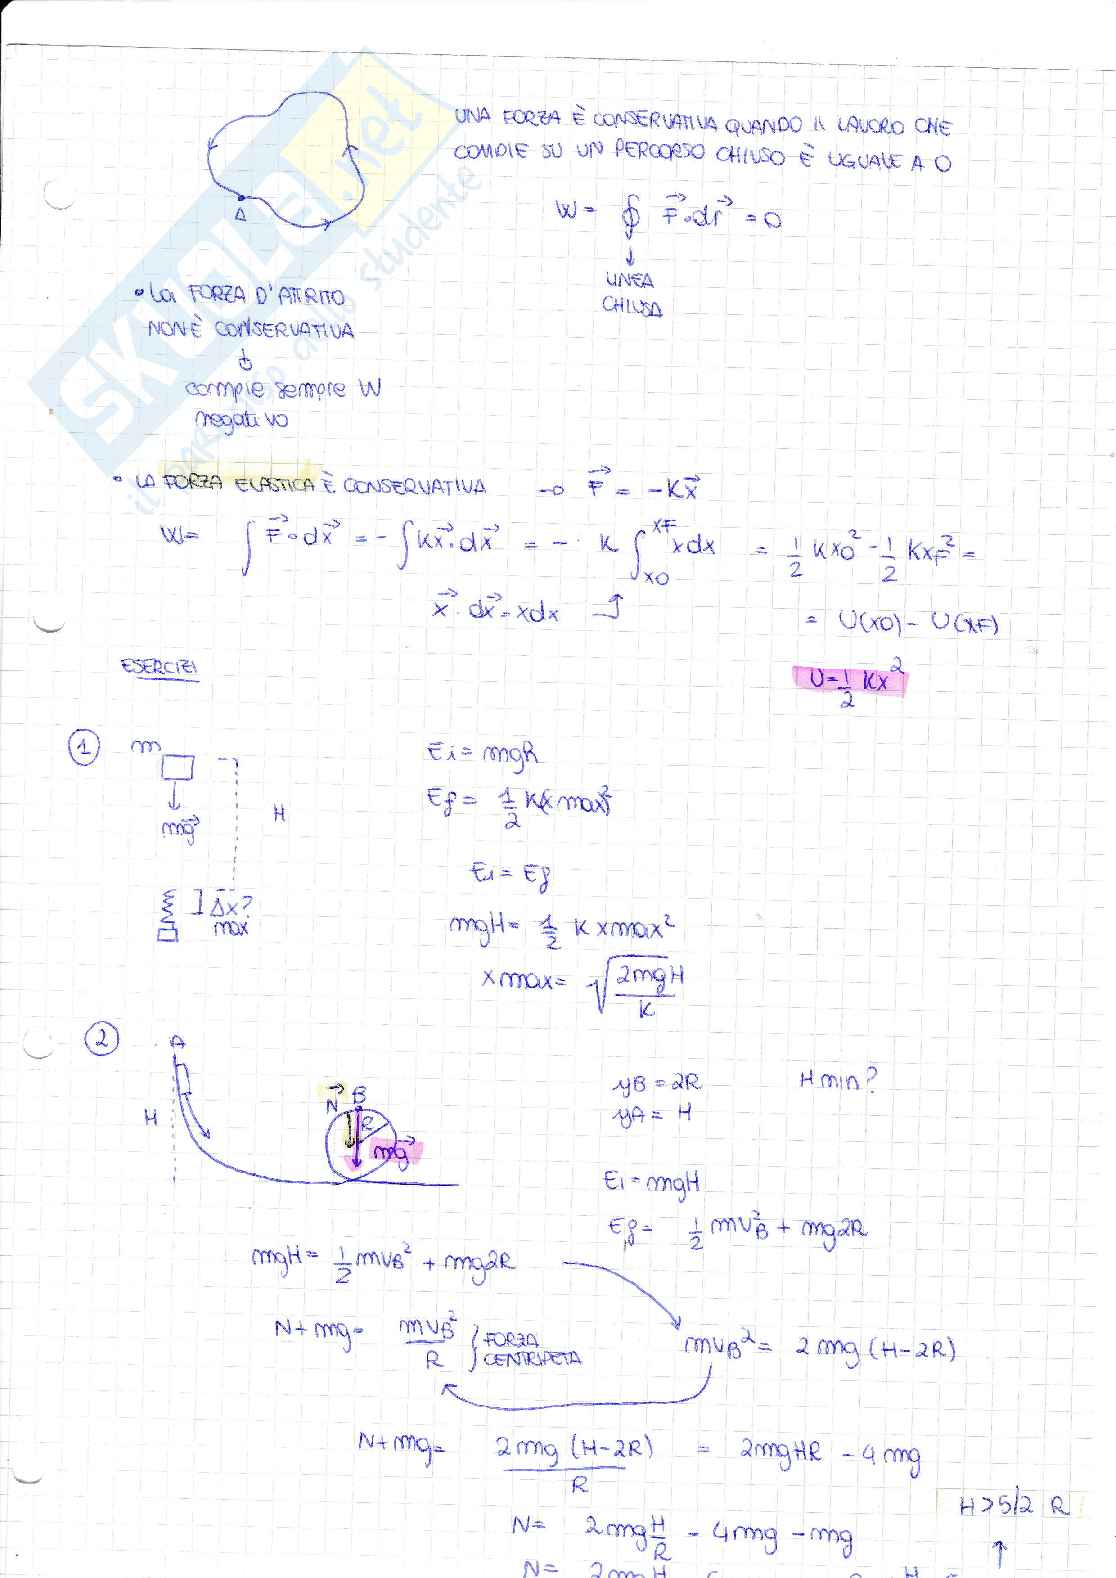 UNA FORZA È CONSERVATIVA QUANDO IL LAVORO CHE
COMPIE SU UN PERCORSO CHIUSO È UGUALE A 0
A
W = ∮ F⃗ · dr⃗ = 0
↓
LINEA
CHIUSA
• La FORZA D'ATTRITO
NON È CONSERVATIVA
↓
compie sempre W
negativo
• LA FORZA ELASTICA È CONSERVATIVA → F⃗ = -Kx⃗
W = ∫ F⃗ · dx⃗ = -∫Kx⃗ · dx⃗ = - K ∫_{x0}^{xF} xdx = 1/2 Kx0² - 1/2 KxF² =
x⃗ · dx⃗ = xdx
= U(x0) - U(xF)
U = 1/2 Kx²
ESERCIZI
① m
mg⃗
H
Δx?
max
Ei = mgh
Ef = 1/2 K(x max)²
Ei = Ef
mgH = 1/2 K xmax²
xmax = √(2mgH/K)
② A
H
N⃗ B
R
mg⃗
yB = 2R H min?
yA = H
Ei = mgH
Ef = 1/2 mvB² + mg2R
mgH = 1/2 mvB² + mg2R
N + mg = mvB²/R } FORZA
CENTRIPETA
mvB² = 2mg (H-2R)
N + mg = 2mg (H-2R)/R = 2mgHR - 4mg
H > 5/2 R
↑
N = 2mg H/R - 4mg - mg
N = 2mgH
SKUOLA.net